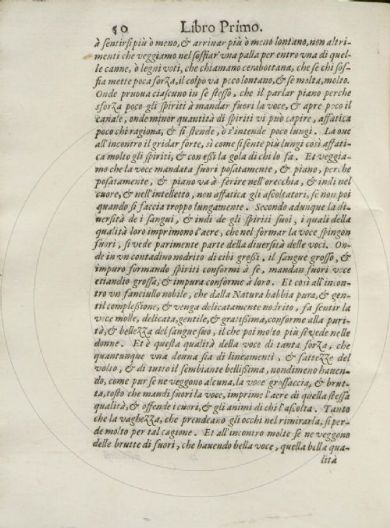 50 Libro Primo.
à sentirsi più ò meno, & arriuar più ò meno lontano, non altri-
menti che veggiamo nel soffiar vna palla per entro vna di quel-
le canne, ò legni voti, che chiamano cerabottana, che se chi sof-
fia mette poca forza, il colpo va poco lontano, & se molta, molto.
Onde pruoua ciascuno in se stesso, che il parlar piano perche
sforza poco gli spiriti à mandar fuori la voce, & apre poco il
canale, onde minor quantità di spiriti vi può capire, affatica
poco chi ragiona, & si stende, ò s'intende poco lungi. La oue
all'incontro il gridar forte, sì come si sente più lungi così affati-
ca molto gli spiriti, & con essi la gola di chi lo fa. Et veggia-
mo che la voce mandata fuori posatamente, & piano, perche
posatamente, & piano va à ferire nell'orecchia, & indi nel
cuore, & nell'intelletto, non affatica gli ascoltatori, se non poi
quando si faccia troppo lungamente. Secondo adunque la di-
uersità de i sangui, & indi de gli spiriti suoi, i quali della
qualità loro imprimono l'aere, che nel formar la voce spingon
fuori, si vede parimente parte della diuersità delle voci. On-
de in vn contadino nodrito di cibi grossi, il sangue grosso, &
impuro formando spiriti conformi à se, mandan fuori voce
etiandio grossa, & impura conforme à loro. Et così all'incon-
tro vn fanciullo nobile, che dalla Natura habbia pura, & gen-
til complessione, & venga delicatamente nodrito, fa sentir la
voce molle, delicata, gentile, & gratissima, conforme alla puri-
tà, & bellezza del sangue suo, il che poi molto più si vede nelle
donne. Et è questa qualità della voce di tanta forza, che
quantunque vna donna sia di lineamenti, & fattezze del
volto, & di tutto il sembiante bellissima, nondimeno hauen-
do, come pur se ne veggono alcuna, la voce grossaccia, & brut-
ta, tosto che mandi fuori la voce, imprime l'aere di quella stessa
qualità, & offende i cuori, & gli animi di chi l'ascolta. Tanto
che la vaghezza, che prendeano gli occhi nel rimirarla, si per-
de molto per tal cagione. Et all'incontro molte se ne veggono
delle brutte di fuori, che hauendo bella voce, quella bella qua-
lità